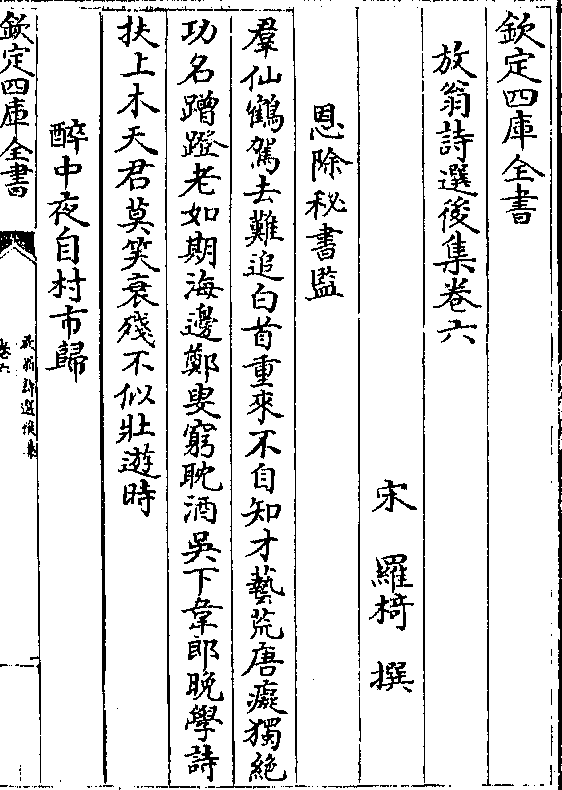 欽定四庫全書
放翁詩選後集卷六
宋 羅椅 撰
恩除秘書監
羣仙鶴駕去難追白首重來不自知才藝荒唐癡獨絶
功名蹭蹬老如期海邊鄭叟窮耽酒吳下韋郎晚學詩
扶上木天君莫笑衰殘不似壯遊時
醉中夜自村市歸
欽定四庫全書
放翁詩選後集
卷六